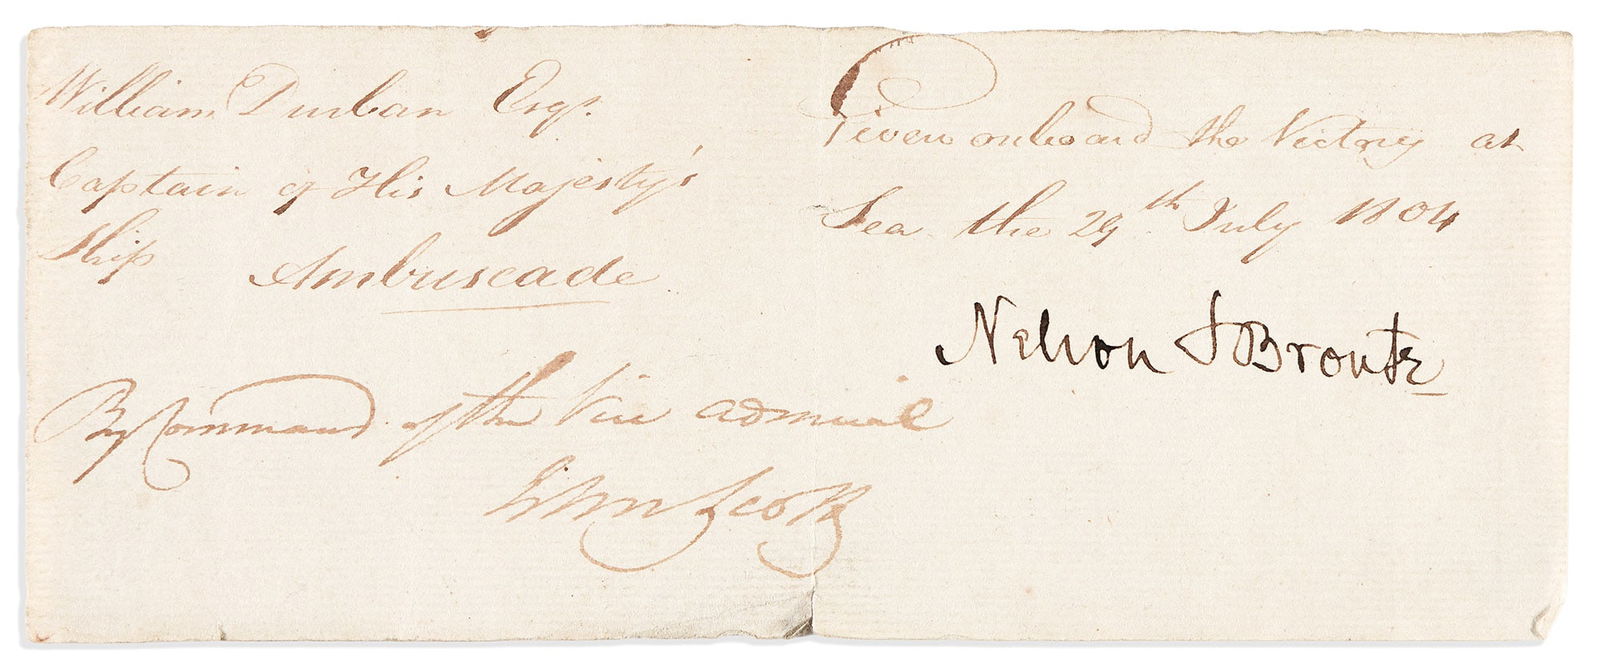 William Durban Esqr.
Captain of His Majesty's
Ship Ambuscade
Given onboard the Victory at
Sea the 29th July 1804
Nelson & Bronte
By Command of the Vice Admiral
John Scott